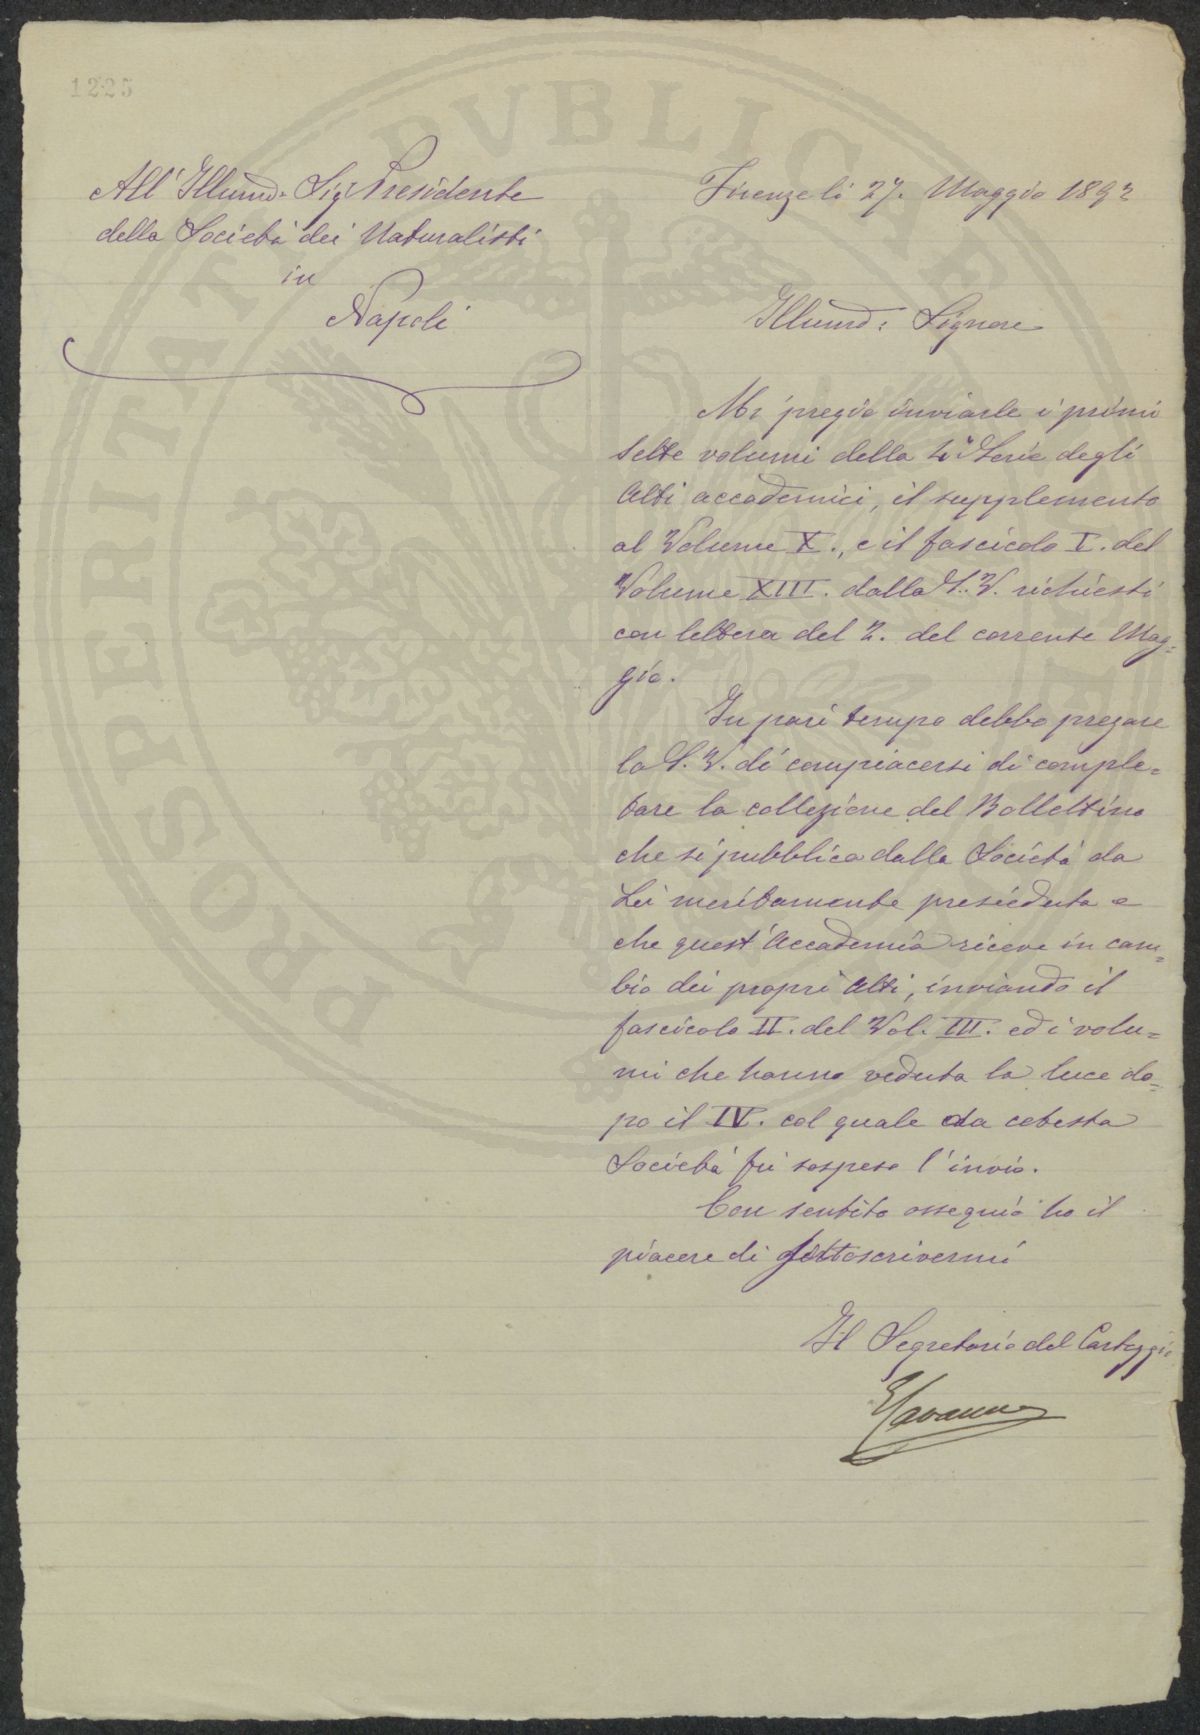 1225
All' Illumo. Sig. Presidente
della Società dei Naturalisti
in
Napoli
Firenze li 27. Maggio 1892
Illumo. Signore
Mi pregio inviarle i primi
sette volumi della 4ª Serie degli
Atti accademici, il supplemento
al Volume X., e il fascicolo I. del
Volume XIII. dalla S. V. richiesti
con lettera del 2. del corrente Mag=
gio.
In pari tempo debbo pregare
la S. V. di compiacersi di comple=
tare la collezione del Bollettino
che si pubblica dalla Società da
Lei meritamente presieduta e
che quest'Accademia riceve in cam=
bio dei propri Atti, inviando il
fascicolo II. del Vol. III. ed i volu=
mi che hanno veduta la luce do=
po il IV. col quale da cotesta
Società fu sospeso l'invio.
Con sentito ossequio ho il
piacere di sottoscrivermi
Il Segretario del Carteggio
PROSPERITATI PVBLICAE